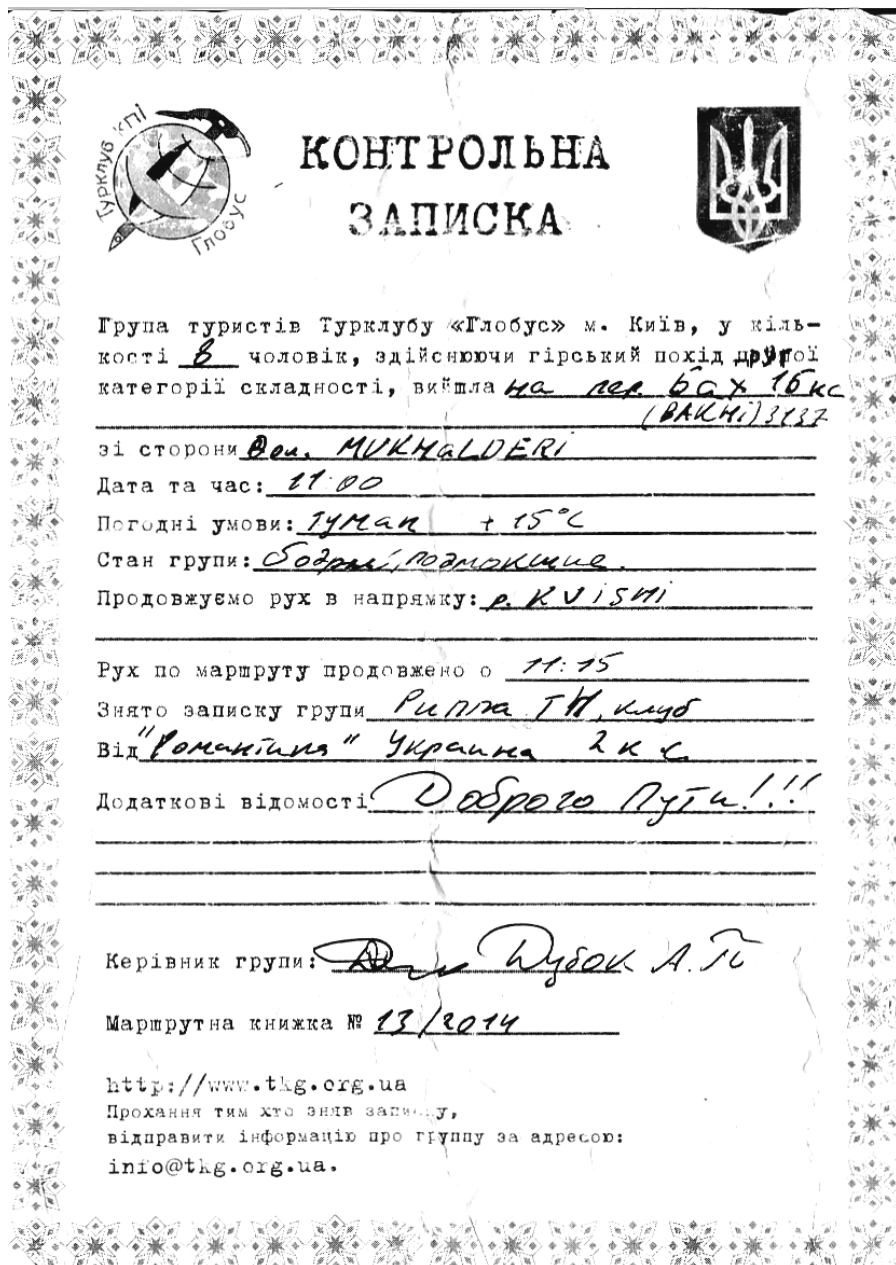 Турклуб КПІ
Глобус
КОНТРОЛЬНА
ЗАПИСКА
Група туристів Турклубу «Глобус» м. Київ, у кіль-
кості 8 чоловік, здійснюючи гірський похід другої
категорії складності, вийшла на пер. Бах 1Б кс
(BAKHi) 3137
зі сторони дол. MUKHaLDERi
Дата та час: 11:00
Погодні умови: Туман +15°C
Стан групи: бодрые, подмокшие.
Продовжуємо рух в напрямку: р. KViSHi
Рух по маршруту продовжено о 11:15
Знято записку групи ТИ, клуб
Від "Романтика" Украина 2 к с
Додаткові відомості Доброго Пути!!!
Керівник групи: Дубок А. П
Маршрутна книжка № 13/2014
http://www.tkg.org.ua
Прохання тим хто зняв записку,
відправити інформацію про группу за адресою:
info@tkg.org.ua.